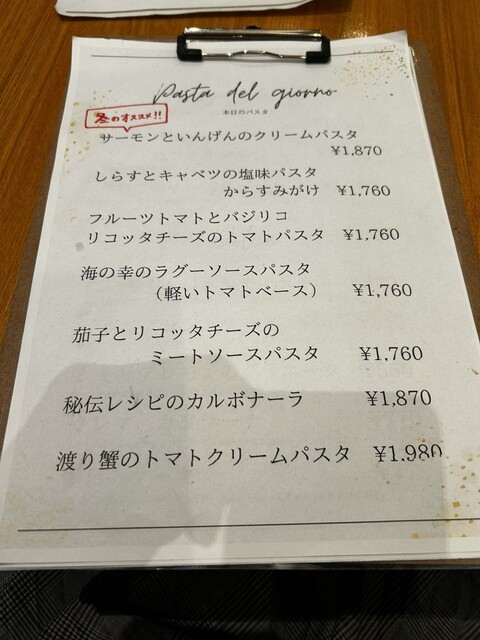 Pasta del giorno
本日のパスタ
冬のオススメ!!
サーモンといんげんのクリームパスタ
¥1,870
しらすとキャベツの塩味パスタ
からすみがけ ¥1,760
フルーツトマトとバジリコ
リコッタチーズのトマトパスタ ¥1,760
海の幸のラグーソースパスタ
（軽いトマトベース） ¥1,760
茄子とリコッタチーズの
ミートソースパスタ ¥1,760
秘伝レシピのカルボナーラ ¥1,870
渡り蟹のトマトクリームパスタ ¥1,980